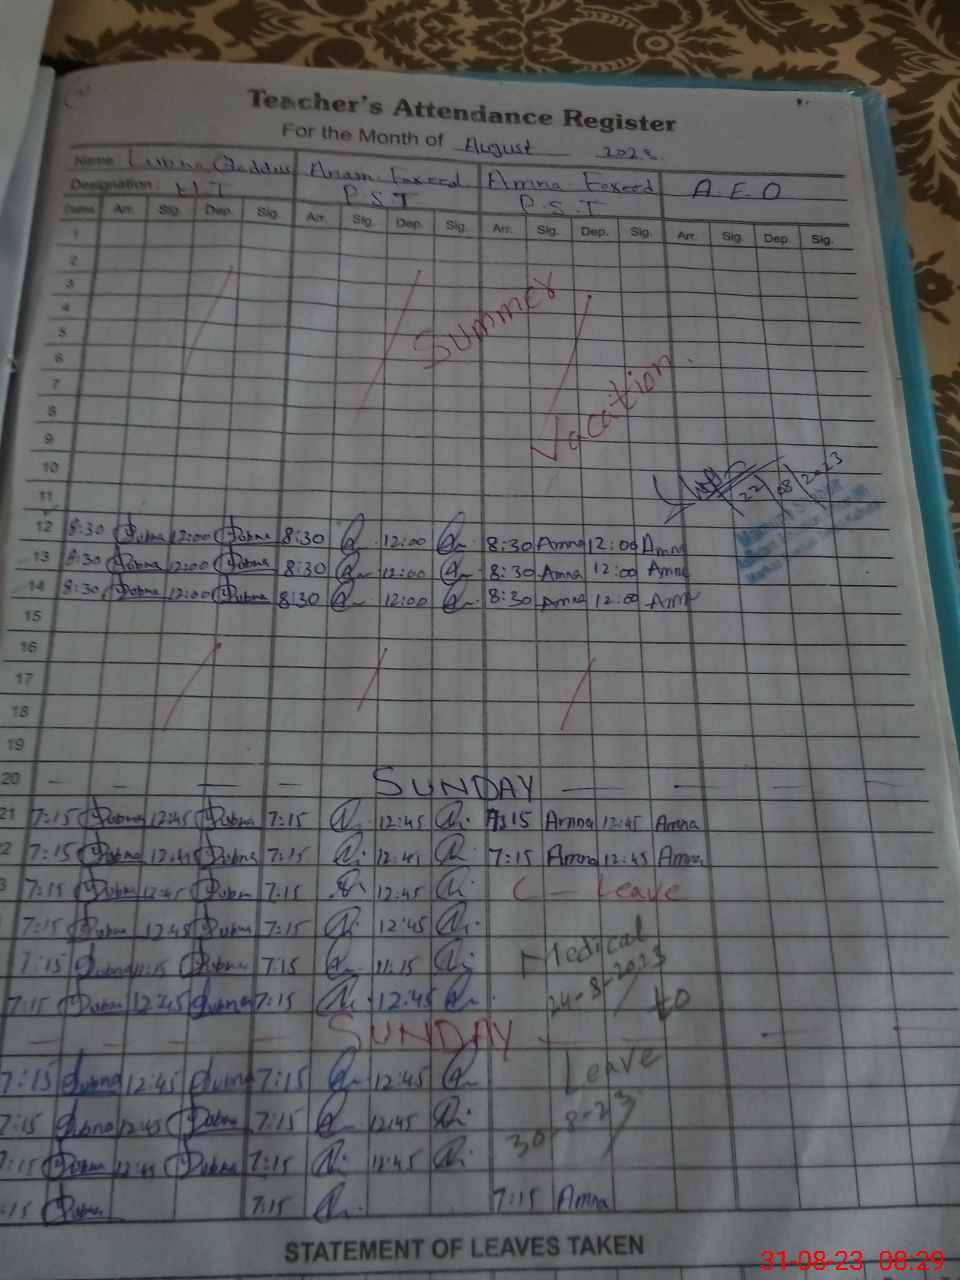 Teacher's Attendance Register
For the Month of August 2023.
Name Lubna Anam Amna A.E.O
Designation: H.T P.S.T P.S.T
Dates Arr. Sig. Dep. Sig. Arr. Sig. Dep. Sig. Arr. Sig. Dep. Sig. Arr. Sig. Dep. Sig.
1
2
3
4
Summer
5
6
7
Vacation.
8
9
10
22/08/2023
11
12 8:30 Lubna 12:00 Lubna 8:30 12:00 8:30 Amna 12:00 Amna
13 8:30 Lubna 12:00 Lubna 8:30 12:00 8:30 Amna 12:00 Amna
14 8:30 Lubna 12:00 Lubna 8:30 12:00 8:30 Amna 12:00 Amna
15
16
17
18
19
20 SUNDAY
21 7:15 Lubna 12:45 Lubna 7:15 12:45 7:15 Amna 12:45 Amna
2 7:15 Lubna 12:45 Lubna 7:15 12:45 7:15 Amna 12:45 Amna
3 7:15 Lubna 12:45 Lubna 7:15 12:45 C - Leave
7:15 Lubna 12:45 Lubna 7:15 12:45 Medical
7:15 Lubna 11:15 Lubna 7:15 11:15 24-8-2023
7:15 Lubna 12:45 Lubna 7:15 12:45 to
SUNDAY
7:15 Lubna 12:45 Lubna 7:15 12:45 Leave
7:15 Lubna 12:45 Lubna 7:15 12:45 30-8-23
7:15 Lubna 12:45 Lubna 7:15 12:45
:15 Lubna 7:15 7:15 Amna
STATEMENT OF LEAVES TAKEN
31-08-23 08:29